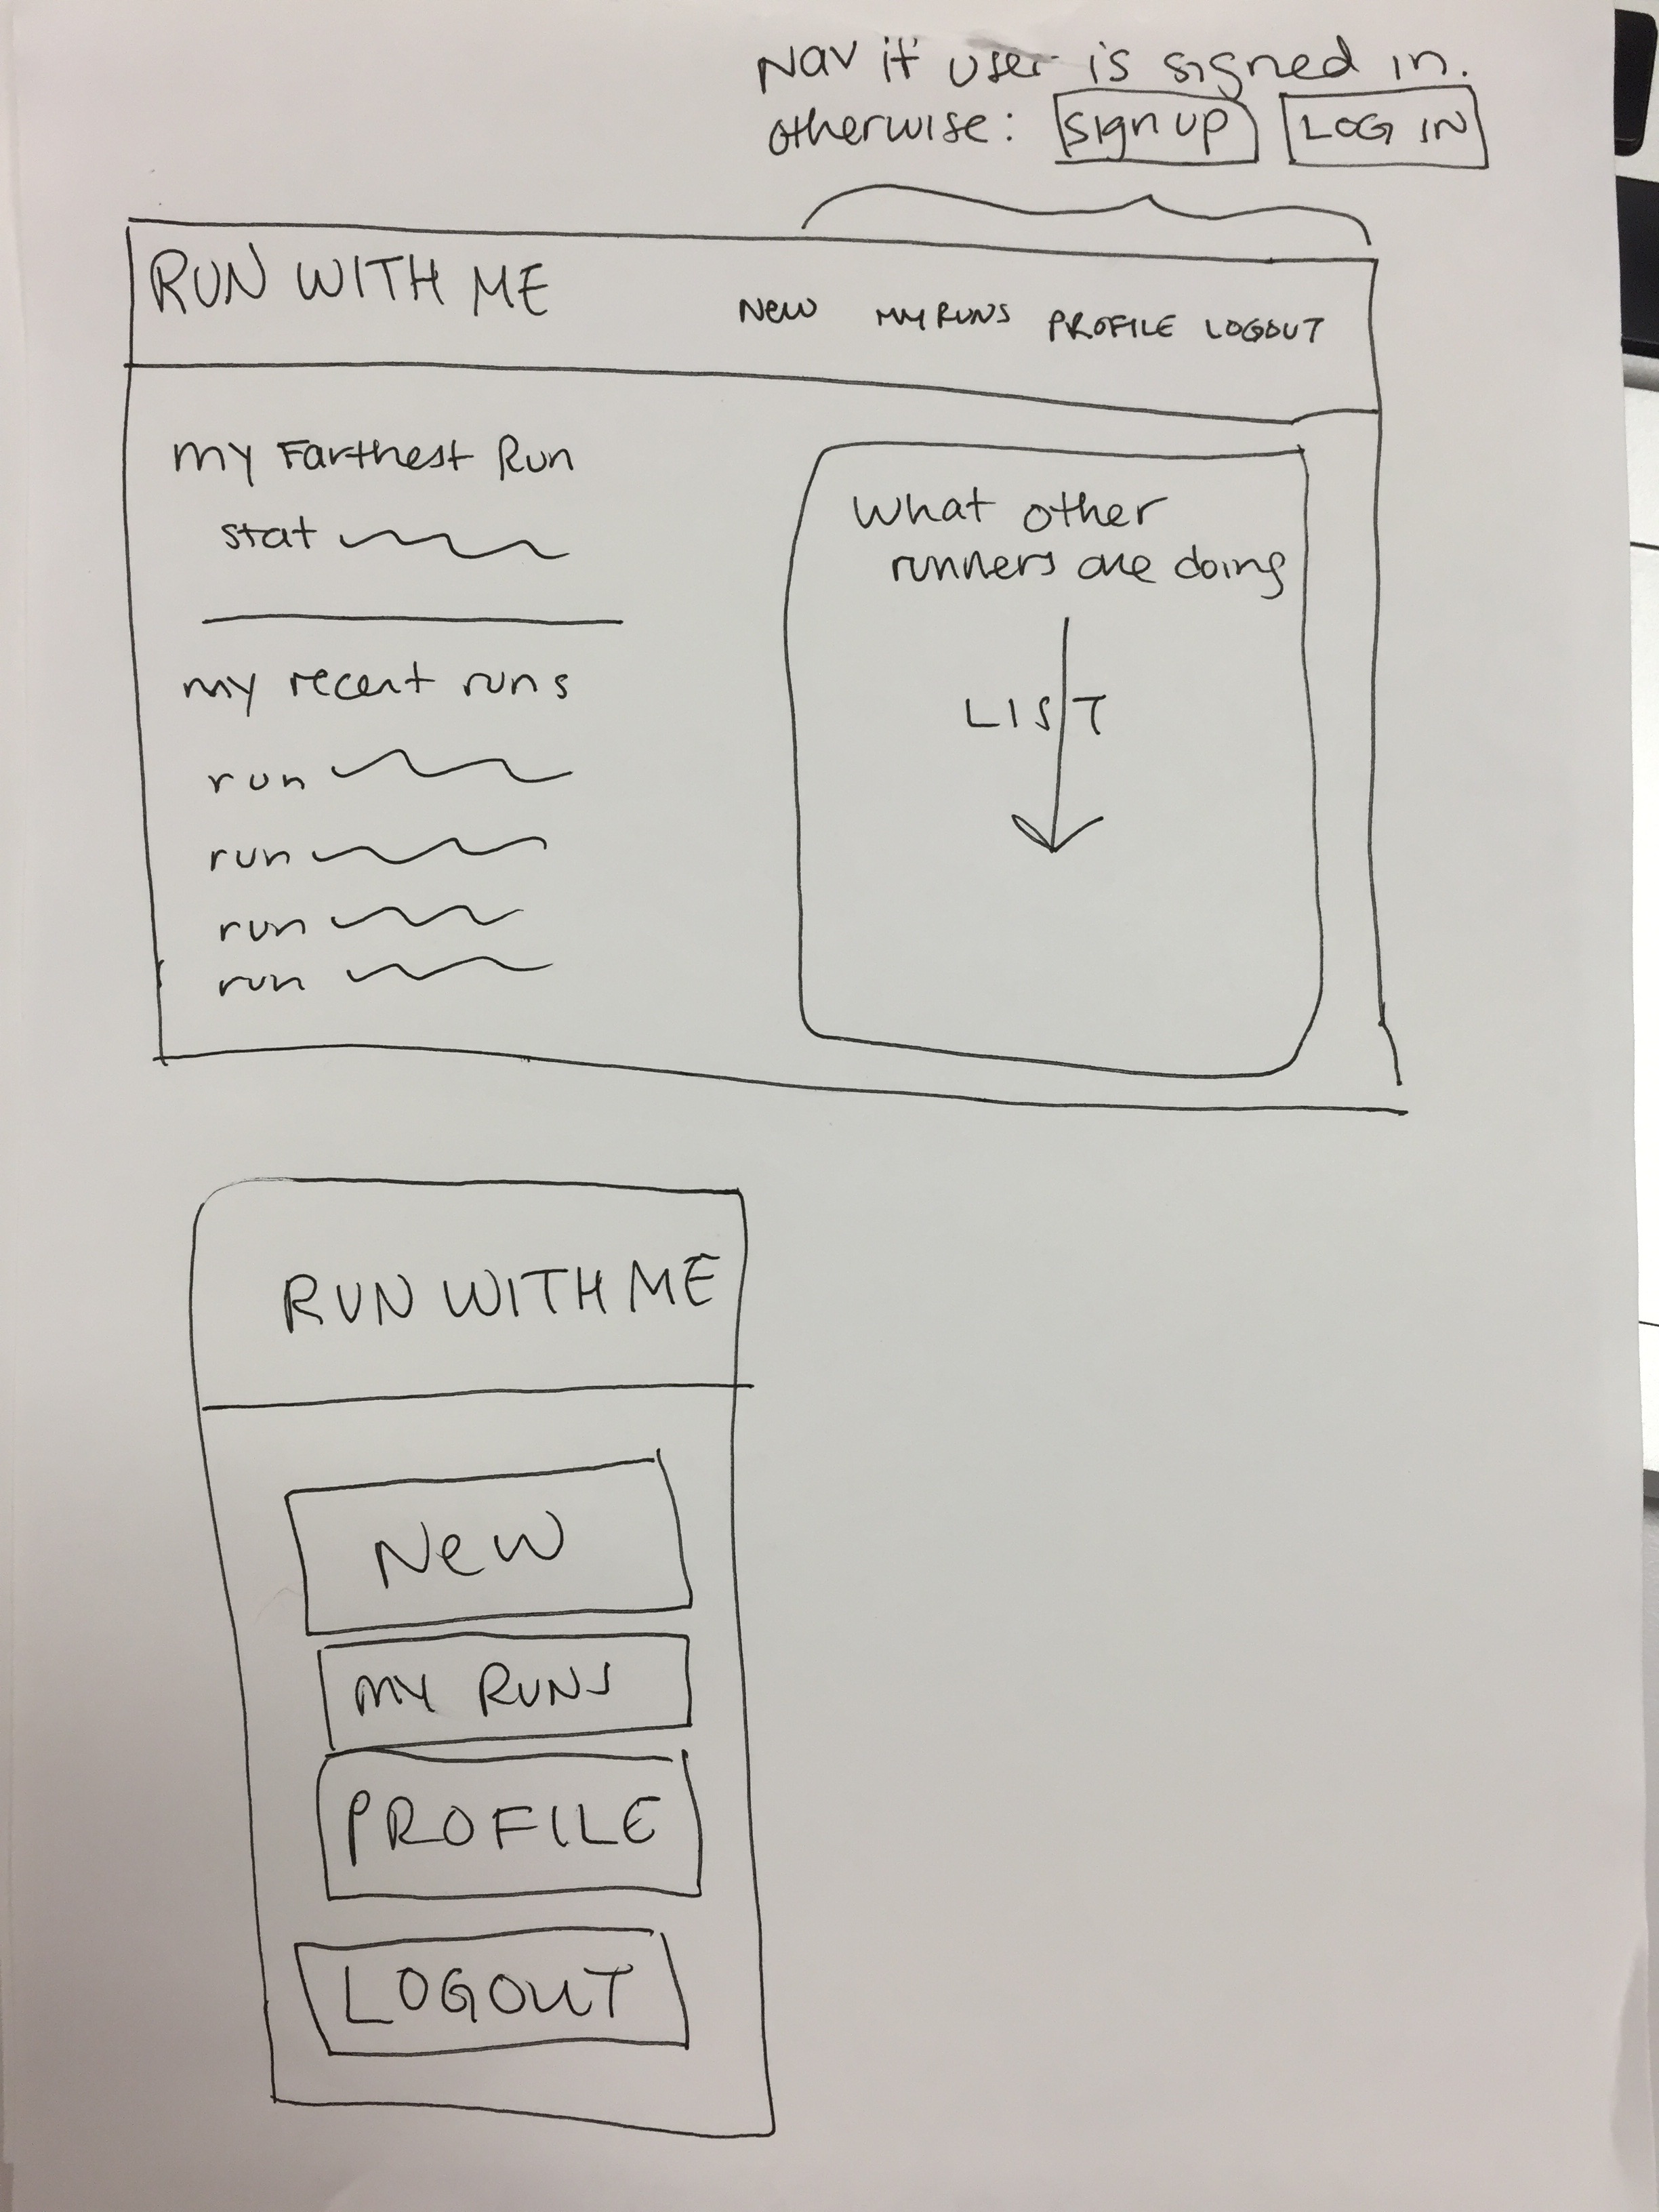 Nav if user is signed in.
otherwise: Sign up LOG IN
RUN WITH ME
New MY RUNS PROFILE LOGOUT
my Farthest Run
stat
my recent runs
run
run
run
run
What other
runners are doing
LIST
RUN WITH ME
New
MY RUNS
PROFILE
LOGOUT